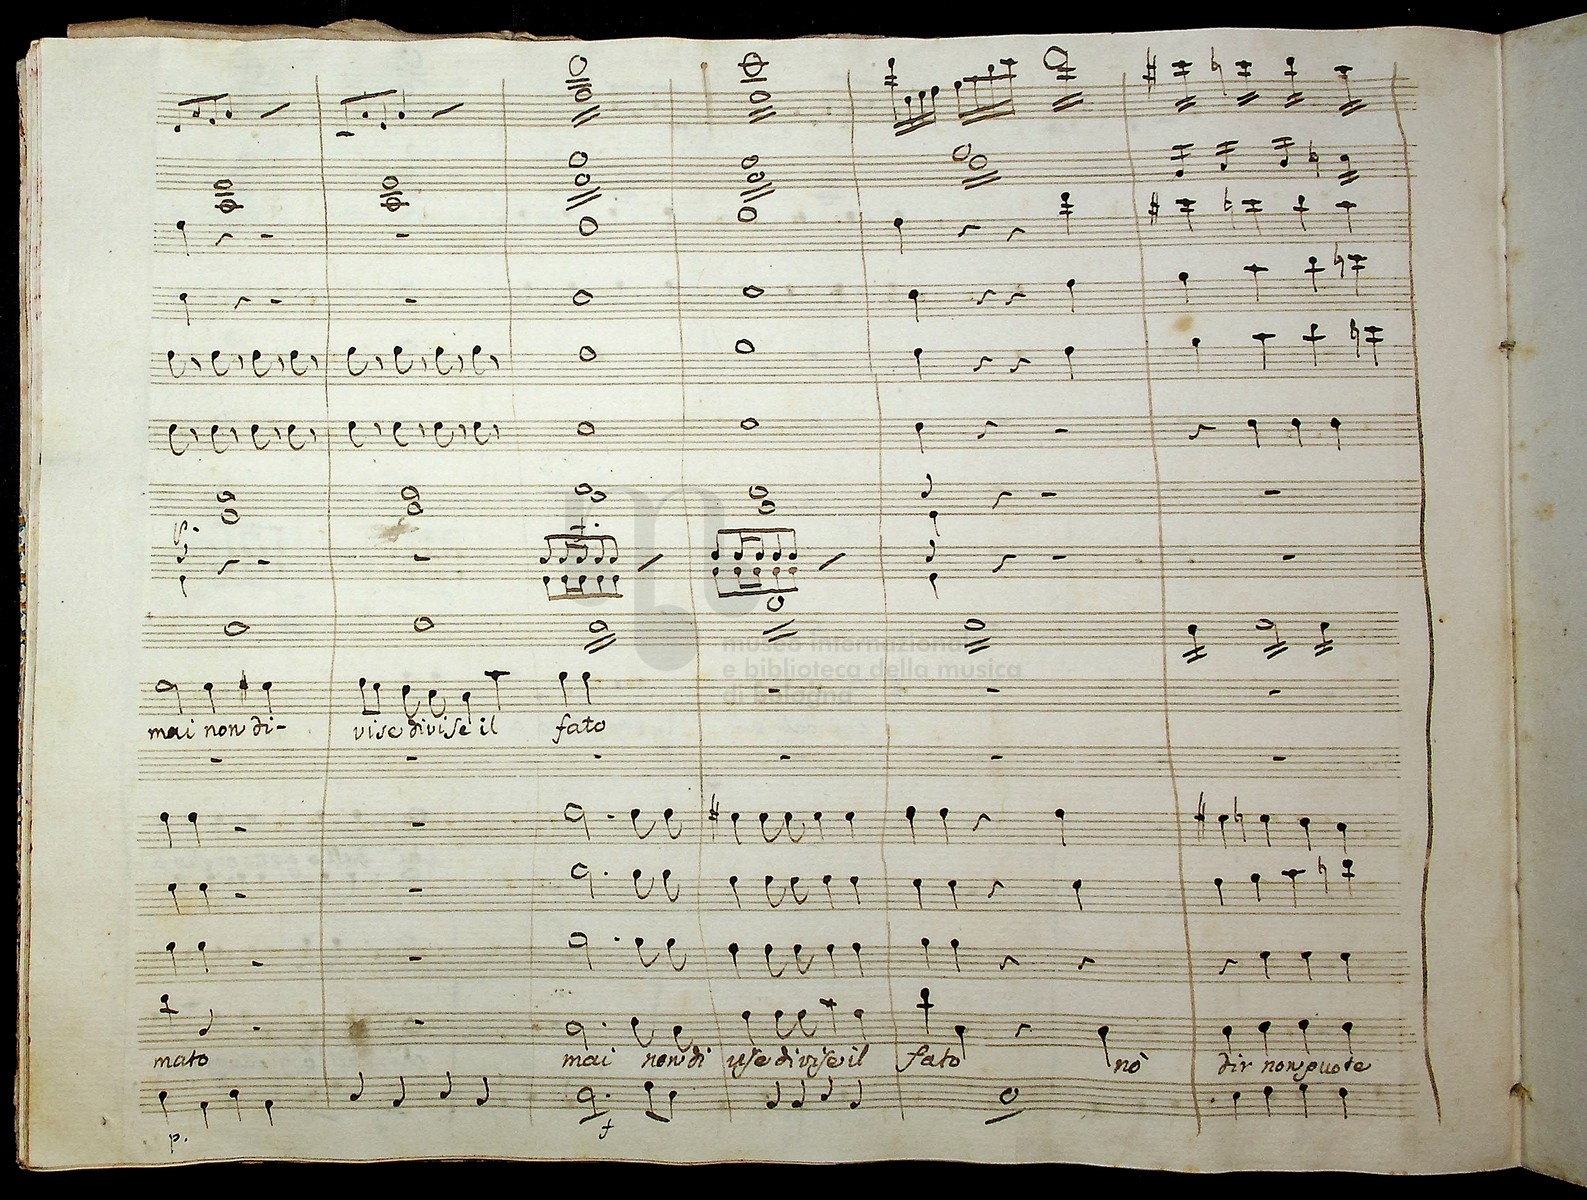 p.
museo internazionale
e biblioteca della musica
di bologna
mai non di- vise divise il fato
mato mai non di vise divise il fato nò dir non puote
p. f